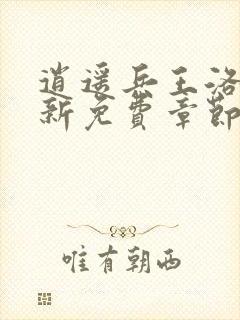 逍遥兵王洛
新免費章節
唯有朝西